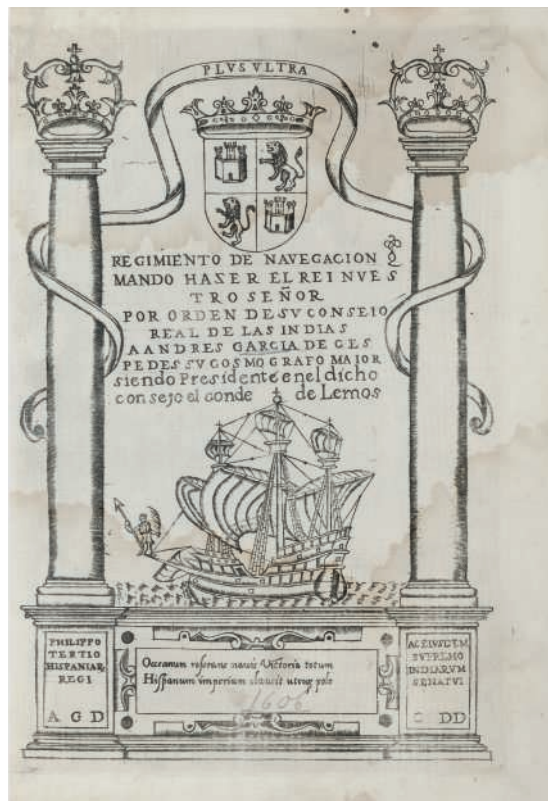 PLVS VLTRA
REGIMIENTO DE NAVEGACION
MANDO HAZER EL REI NVES
TRO SEÑOR
POR ORDEN DE SV CONSEIO
REAL DE LAS INDIAS
A ANDRES GARCIA DE CES
PEDES SV COSMOGRAFO MAIOR
siendo Presidente en el dicho
consejo el conde de Lemos
PHILIPPO
TERTIO
HISPANIAR,
REGI
A G D
Oceanum reserans nauis Victoria totum
Hispanum imperium clausit utroq polo
1606
AC EIVSDEM
SVPREMO
INDIARVM
SENATVI
C DD